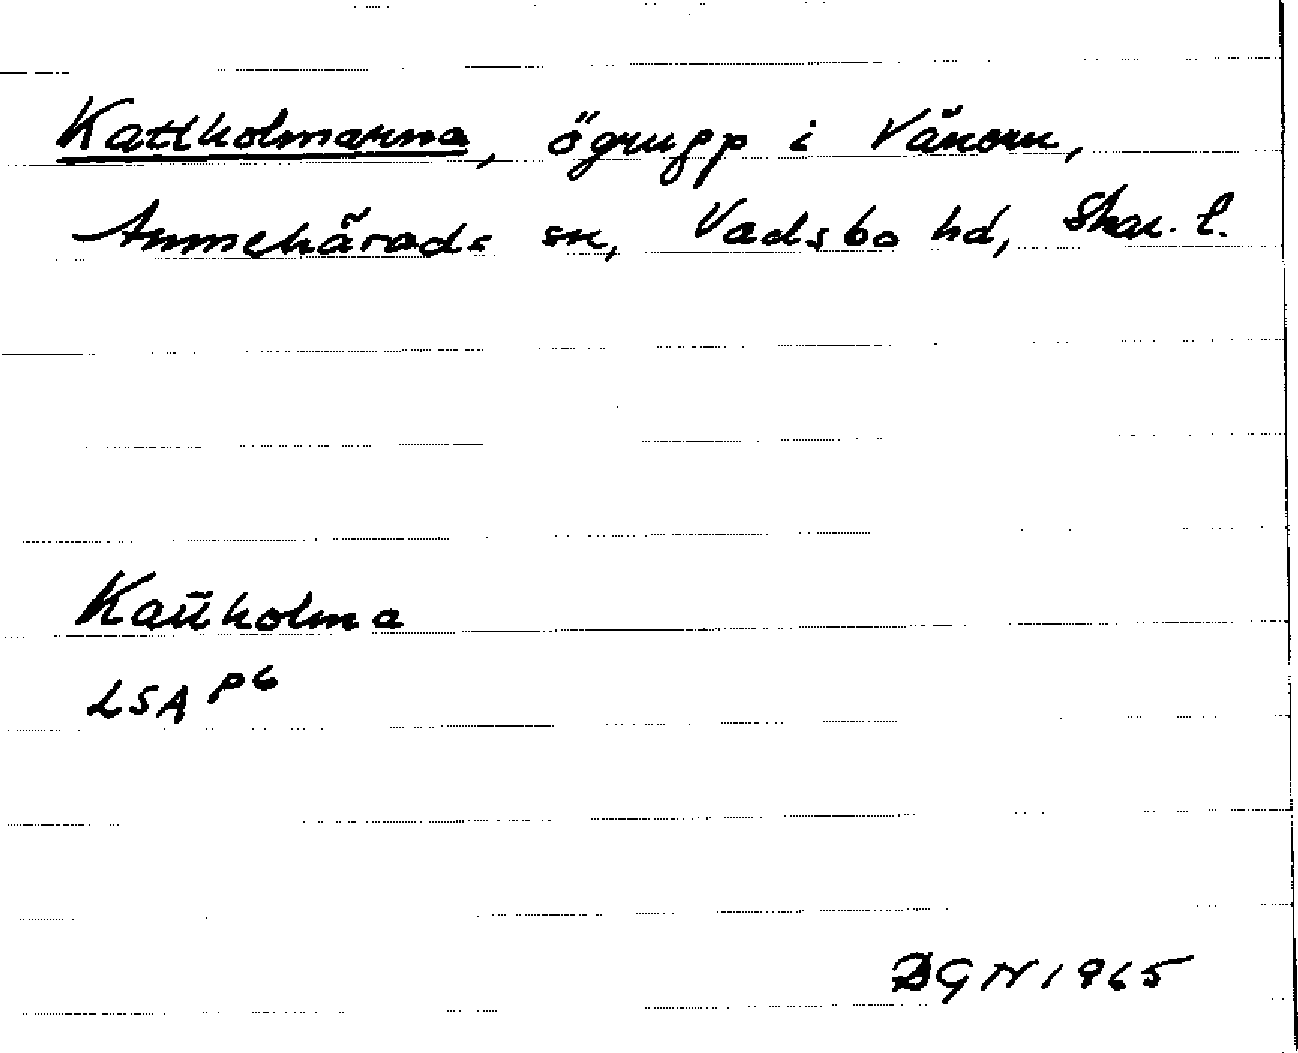 Kattholmarna, ögrupp i Vänern,
Amnehärads sn, Vadsbo hd, Skar. l.
Kattholma
LSA P6
BGN 1965